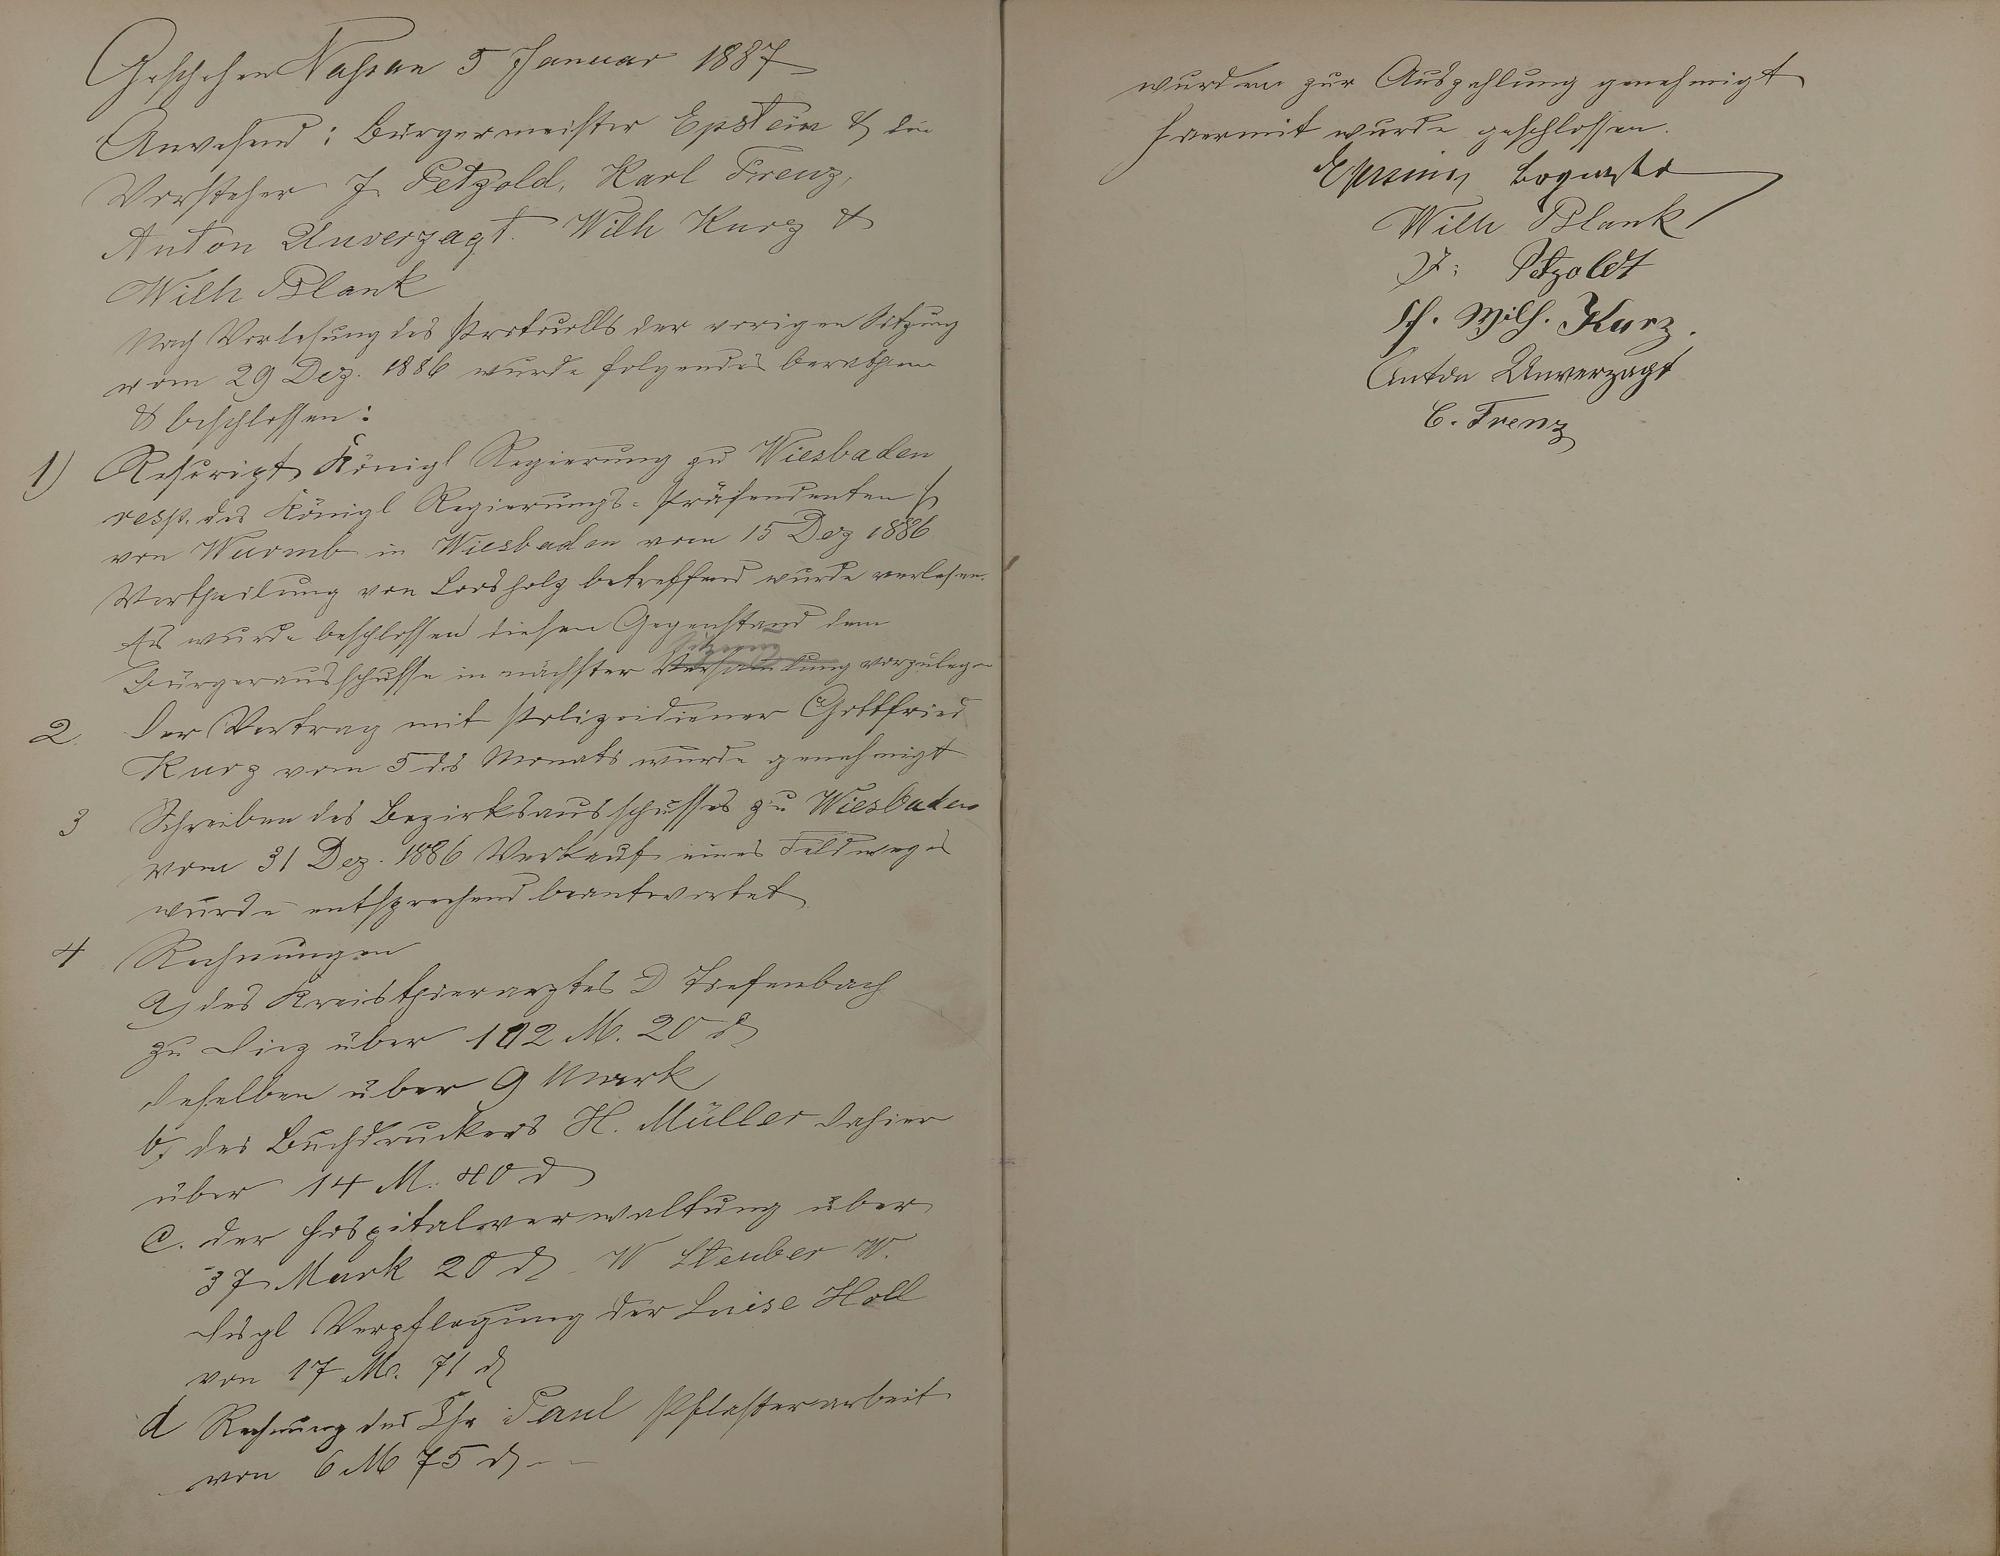 Geschehen Nassau 5 Januar 1887
Anwesend: Bürgermeister Epstein & die
Vorsteher J. Petzold, Karl Frenz,
Anton Unverzagt. Wilh Kurz &
Wilh Blank
Nach Vorlesung des Protocolls der vorigen Sitzung
vom 29 Dez. 1886 wurde folgendes berathen
& beschlossen:
1) Rescript Königl Regierung zu Wiesbaden
resp. des Königl Regierungs-Präsendenten H
von Wurmb in Wiesbaden vom 15 Dez 1886
Vertheilung von Loosholz betreffend wurde verlesen.
Es wurde beschlossen diesen Gegenstand dem
Sitzung
Bürgerausschusse in nächster Versamlung vorzulegen
2. Der Vertrag mit Polizeidiener Gottfried
Kurz vom 5 ds Monats wurde genehmigt
3 Schreiben des Bezirksausschusses zu Wiesbaden
vom 31 Dez. 1886 Verkauf eines Feldweges
wurde entsprechend beantwortet
4 Rechnungen
a, des Kreisthierarztes D Tiefenbach
zu Diez über 102 M. 20 d
deselben über 9 Mark
b, des Buchdruckers H. Müller dahier
über 14 M. 40 d
c. der Hospitalverwaltung über
37 Mark 20 d W Steuber W.
dsgl Verpflegung der Luise Holl
von 17 M. 71 d
d Rechnung des Chr Paul Pflasterarbeit
von 6 M 75 d - -
wurden zur Auszahlung genehmigt
Hiermit wurde geschlossen.
Epstein, Bürgmstr
Wilh Blank
J: Petzoldt
Ph. Wilh. Kurz.
Anton Unverzagt
C. Frenz